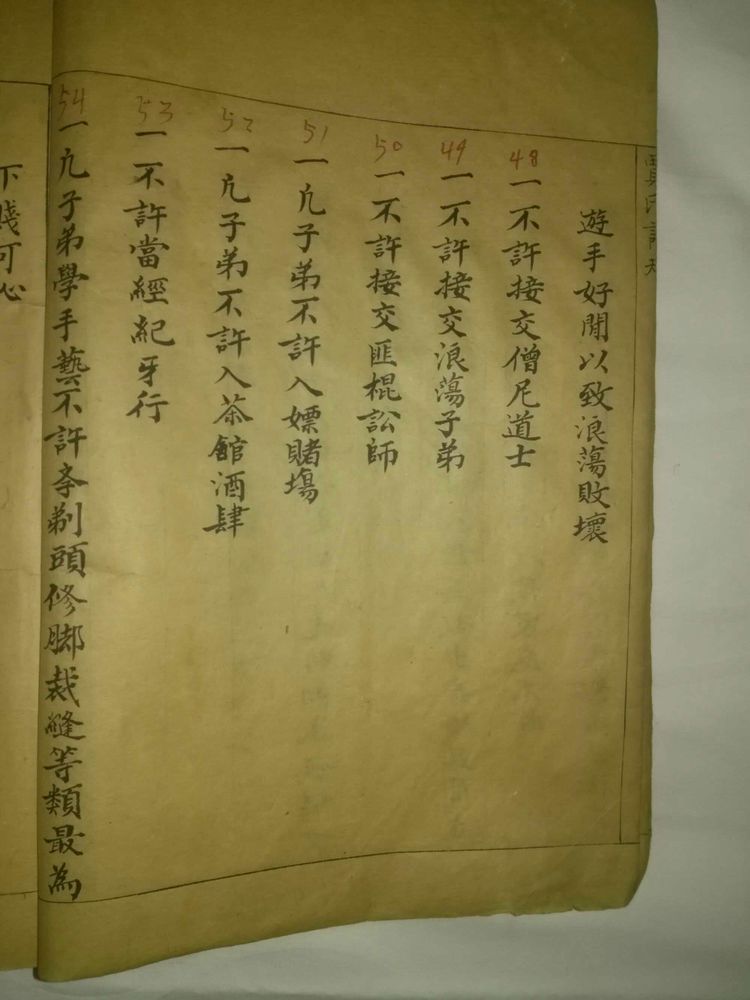 遊手好閒以致浪蕩敗壞
48
一不許接交僧尼道士
49
一不許接交浪蕩子弟
50
一不許接交匪棍訟師
51
一凢子弟不許入嫖賭塲
52
一凢子弟不許入茶館酒肆
53
一不許當經紀牙行
54
一凢子弟學手藝不許斈剃頭修脚裁縫等類最為
下賤可心